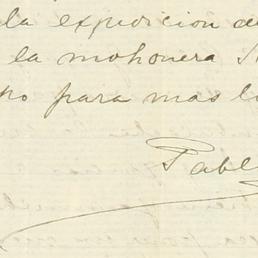 la expedicion de
la mohonera
para mas
Pabl